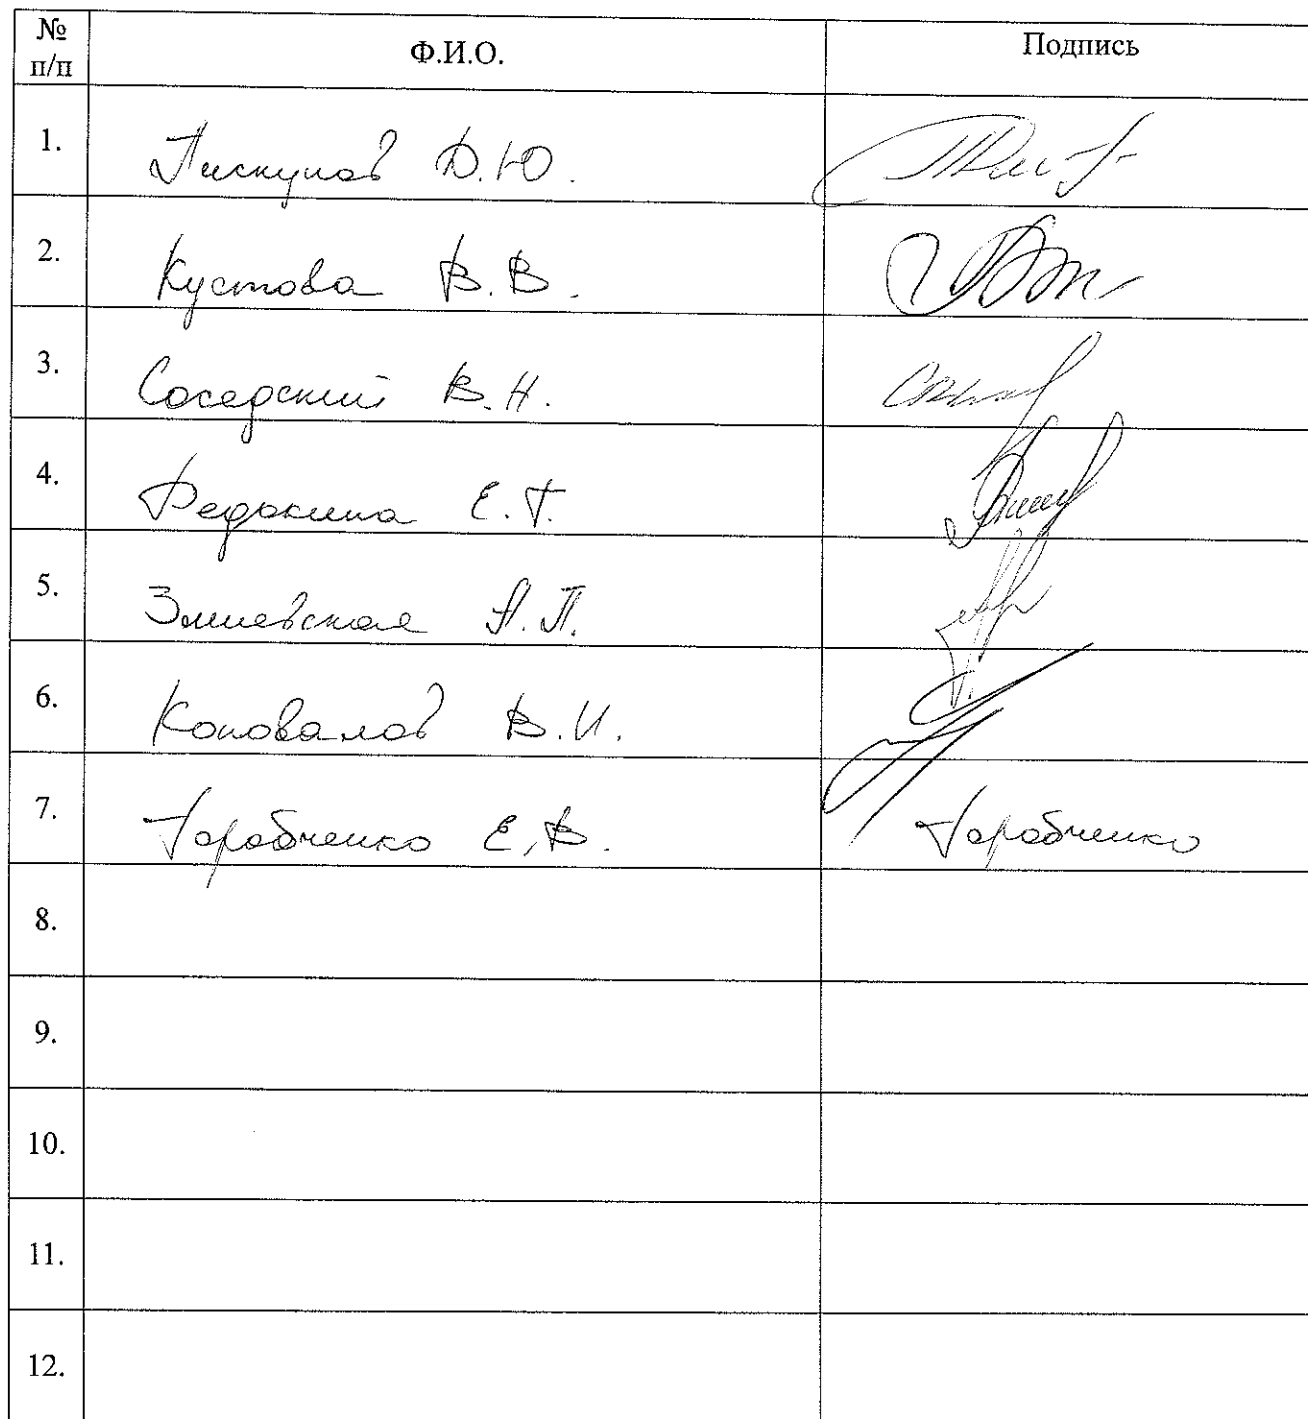 № п/п Ф.И.О. Подпись
1. Пискунов Д.Ю.
2. Кустова В.В.
3. Соседский В.Н.
4. Редькина Е.Г.
5. Змиевская А.П.
6. Коновалов В.И.
7. Тарабченко Е.В. Тарабченко
8.
9.
10.
11.
12.